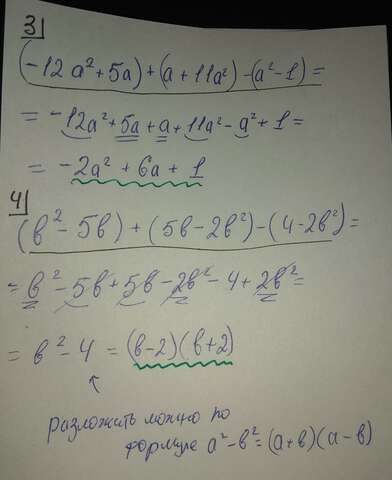 3)
(-12a²+5a)+(a+11a²)-(a²-1)=
= -12a²+5a+a+11a²-a²+1=
= -2a²+6a+1
4)
(b²-5b)+(5b-2b²)-(4-2b²)=
= b²-5b+5b-2b²-4+2b²=
= b²-4 = (b-2)(b+2)
разложить можно по
формуле a²-b²=(a+b)(a-b)